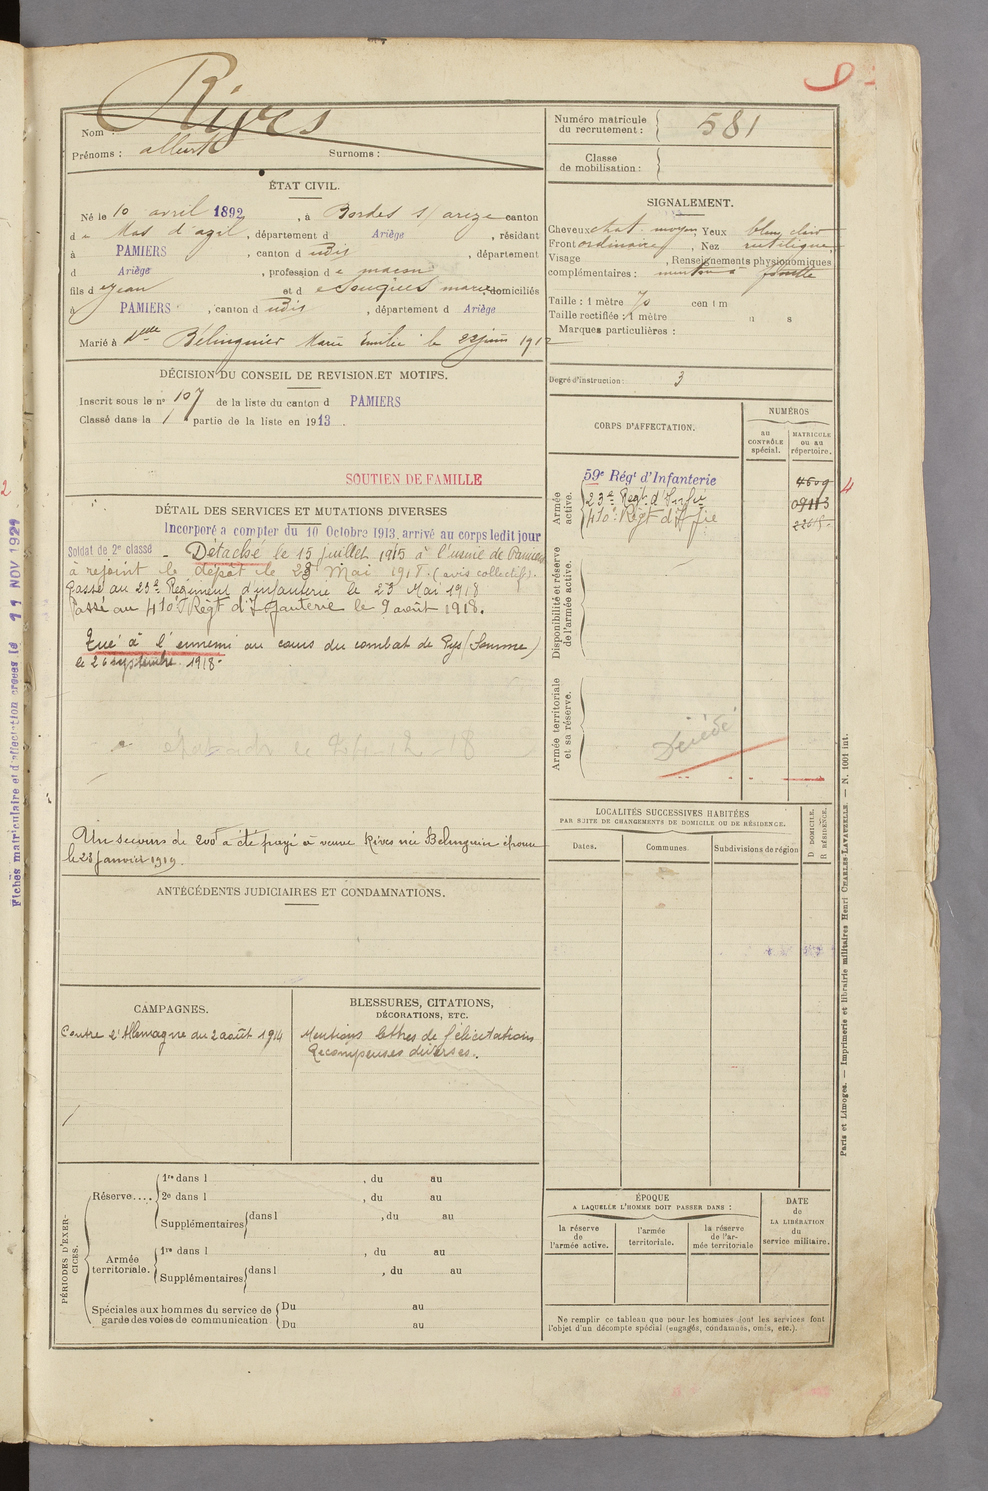 Rives
Nom :
Prénoms : albert Surnoms :
Numéro matricule du recrutement : 581
Classe de mobilisation :
ÉTAT CIVIL.
Né le 10 avril 1892, à Bordes s/ arize canton
d e Mas d'azil, département d Ariège, résidant
à PAMIERS, canton d udis, département
d Ariège, profession d e maçon
fils d e Jean et d e Souquès marie, domiciliés
à PAMIERS, canton d udis, département d Ariège
Marié à Delle Bélinguier Marie Émilie le 22 juin 1912
SIGNALEMENT.
Cheveux chat. moyen, Yeux bleu clair
Front ordinaire, Nez rectiligne
Visage , Renseignements physionomiques
complémentaires : menton à
Taille : 1 mètre 70 centim
Taille rectifiée : 1 mètre
Marques particulières :
Degré d'instruction : 3
DÉCISION DU CONSEIL DE REVISION ET MOTIFS.
Inscrit sous le no 107 de la liste du canton d PAMIERS
Classé dans la 1 partie de la liste en 1913.
SOUTIEN DE FAMILLE
DÉTAIL DES SERVICES ET MUTATIONS DIVERSES
Incorporé a compter du 10 Octobre 1913, arrivé au corps ledit jour
Soldat de 2e classe - Détaché le 15 juillet 1915 à l'usine de Pamiers
à rejoint le dépôt le 23 Mai 1918. (avis collectif).
Passé au 23e Régiment d'infanterie le 23 Mai 1918
Passé au 410e Régt d'Infanterie le 9 août 1918.
Tué à l'ennemi au cours du combat de Pys (Somme)
le 26 septembre 1918.
Un secours de 200f a été payé à veuve Rives née Belinguier épouse
le 28 Janvier 1919.
ANTÉCÉDENTS JUDICIAIRES ET CONDAMNATIONS.
CAMPAGNES.
Contre l'Allemagne du 2 août 1914
BLESSURES, CITATIONS,
DÉCORATIONS, ETC.
Mentions lettres de félicitations
Récompenses diverses.
PÉRIODES D'EXERCICES.
Réserve.... 1re dans l , du au
2e dans l , du au
Supplémentaires dans l , du au
Armée territoriale. 1re dans l , du au
Supplémentaires dans l , du au
Spéciales aux hommes du service de garde des voies de communication
Du au
Du au
CORPS D'AFFECTATION.
NUMÉROS
au CONTRÔLE spécial.
MATRICULE ou au répertoire.
Armée active.
59e Régt d'Infanterie 4609
23e Régt d'Infie
410e Régt d'Infie
Disponibilité et réserve de l'armée active.
Armée territoriale et sa réserve.
Décédé
LOCALITÉS SUCCESSIVES HABITÉES
PAR SUITE DE CHANGEMENTS DE DOMICILE OU DE RÉSIDENCE.
Dates.
Communes.
Subdivisions de région
D DOMICILE.
R RÉSIDENCE.
ÉPOQUE
A LAQUELLE L'HOMME DOIT PASSER DANS :
la réserve de l'armée active.
l'armée territoriale.
la réserve de l'armée territoriale
DATE de LA LIBÉRATION du service militaire.
Ne remplir ce tableau que pour les hommes dont les services font
l'objet d'un décompte spécial (engagés, condamnés, omis, etc.).
Paris et Limoges. — Imprimerie et librairie militaires Henri CHARLES-LAVAUZELLE. — N. 1001 int.
Fiches matriculaire et d'affectation créées le 11 NOV 1921